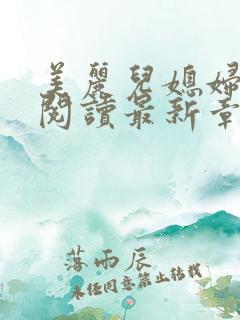 美麗兒媳婦
閱讀最新章
落雨辰
未经同意禁止转载